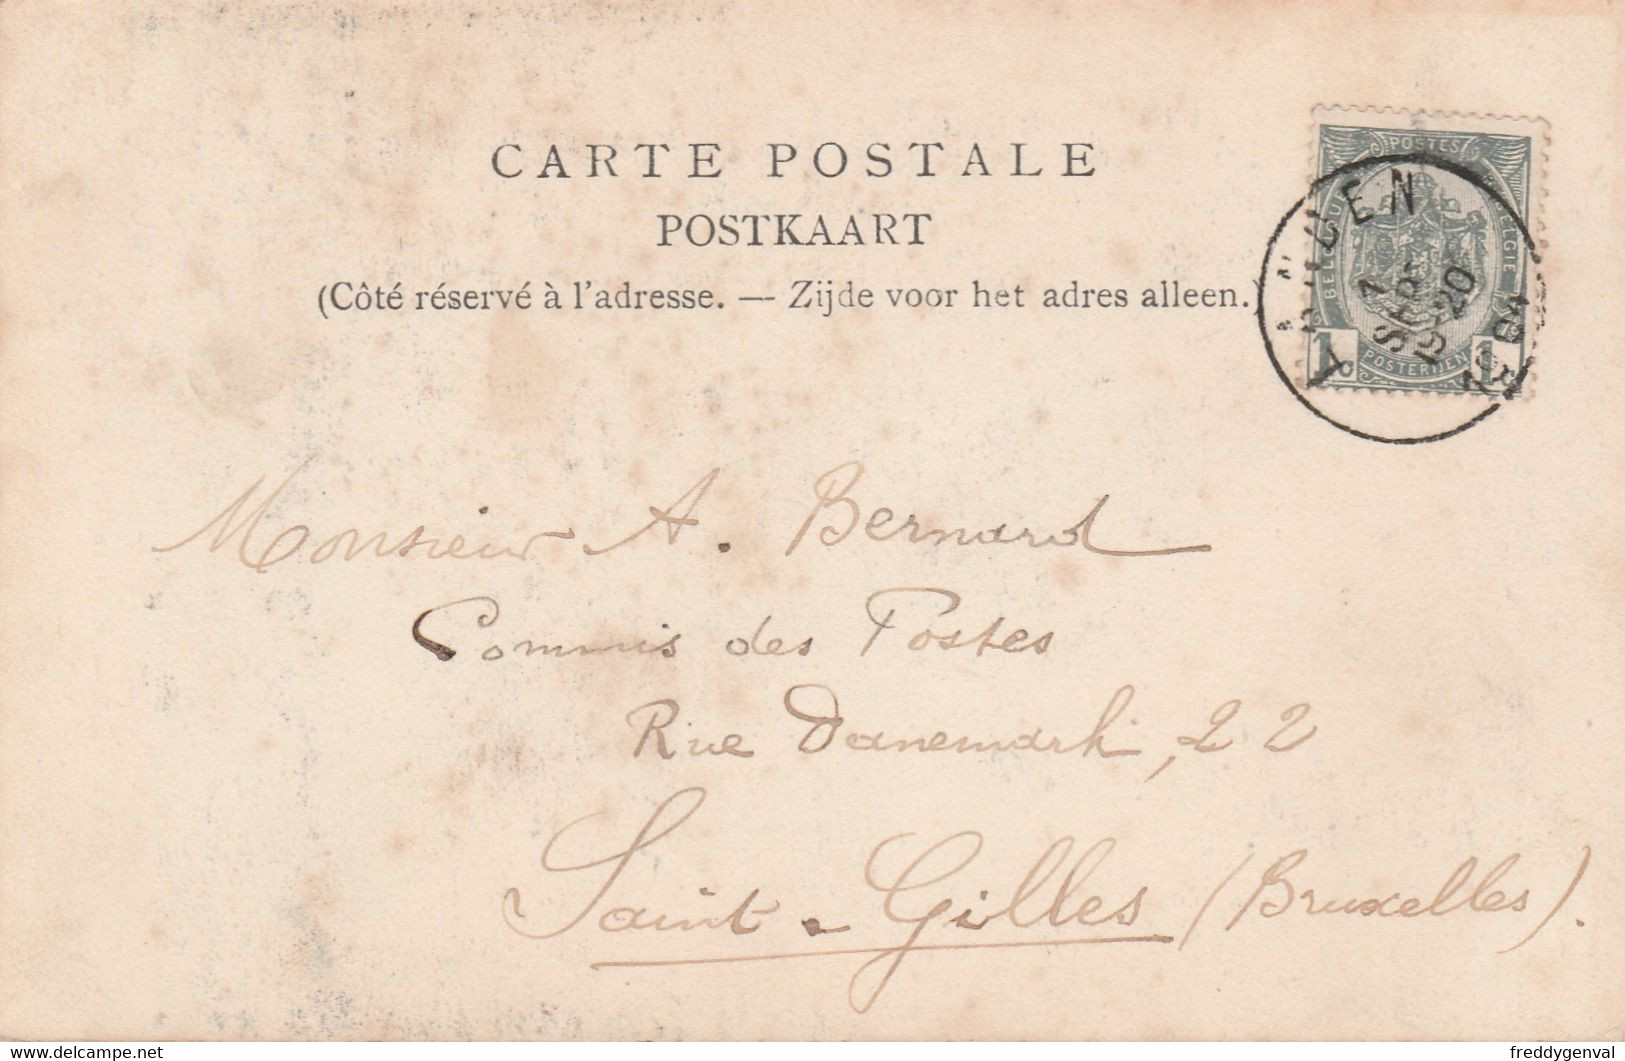 CARTE POSTALE
POSTKAART
(Côté réservé à l'adresse. — Zijde voor het adres alleen.)
POSTES
BELGIQUE
BELGIE
POSTERIJEN
1 1
1
SEPT
19-20
1904
Monsieur A. Bernard
Commis des Postes
Rue Danemark, 22
Saint-Gilles (Bruxelles).
www.delcampe.net
freddygenval